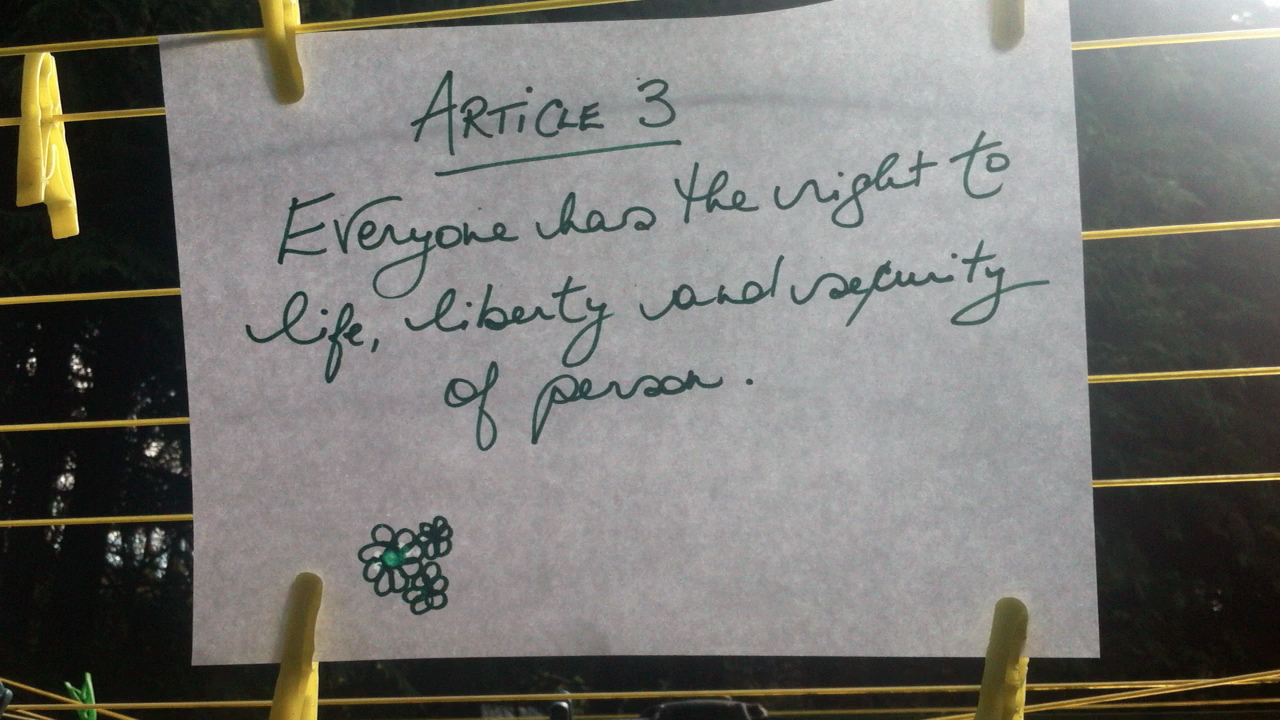 ARTiCLE 3
Everyone has the right to
life, liberty and security
of person.